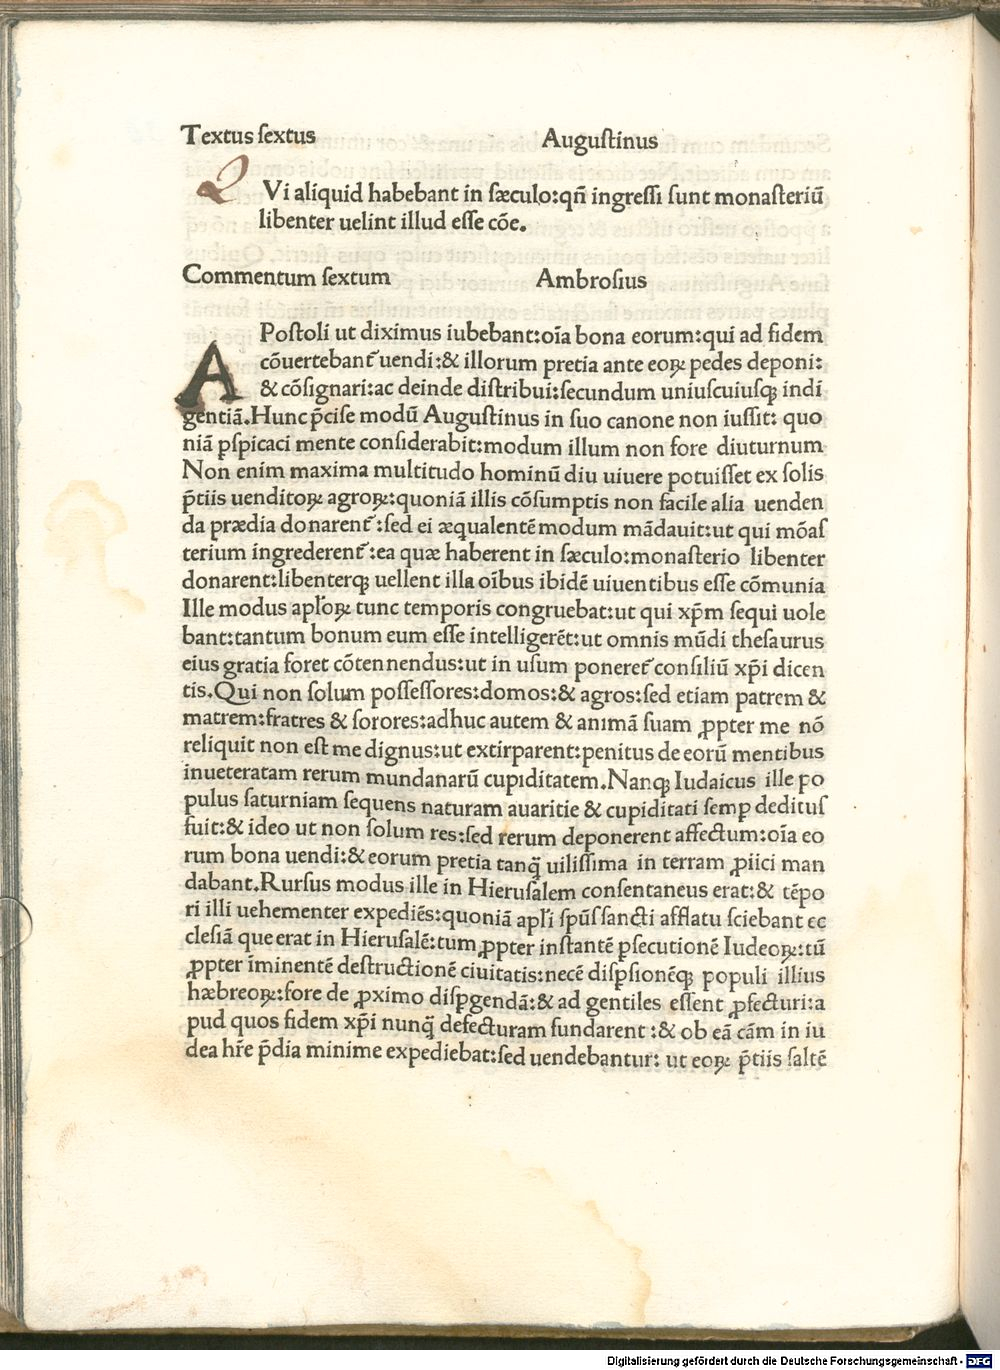 Textus ſextus Auguſtinus
QVi aliquid habebant in ſæculo:qn̄ ingreſſi ſunt monaſteriū
libenter uelint illud eſſe cōe.
Commentum ſextum Ambroſius
APoſtoli ut diximus iubebant:oīa bona eorum:qui ad fidem
cōuertebant᷒ uendi:& illorum pretia ante eoꝝ pedes deponi:
& cōſignari:ac deinde diſtribui:ſecundum uniuſcuiuſqꝫ indi
gentiā.Hunc p̄ciſe modū Auguſtinus in ſuo canone non iuſſit: quo
niā pſpicaci mente conſiderabit:modum illum non fore diuturnum
Non enim maxima multitudo hominū diu uiuere potuiſſet ex ſolis
p̄tiis uenditoꝝ agroꝝ:quoniā illis cōſumptis non facile alia uenden
da prædia donarent᷒:ſed ei æqualentē modum mādauit:ut qui mōaſ
terium ingrederent᷒:ea quæ haberent in ſæculo:monaſterio libenter
donarent:libenterqꝫ uellent illa oībus ibidē uiuentibus eſſe cōmunia
Ille modus apl̄oꝝ tunc temporis congruebat:ut qui xp̄m ſequi uole
bant:tantum bonum eum eſſe intelligerēt:ut omnis mūdi theſaurus
eius gratia foret cōtennendus:ut in uſum poneret᷒ conſiliū xp̄i dicen
tis.Qui non ſolum poſſeſſores:domos:& agros:ſed etiam patrem &
matrem:fratres & ſorores:adhuc autem & animā ſuam ꝓpter me nō
reliquit non eſt me dignus:ut extirparent:penitus de eorū mentibus
inueteratam rerum mundanarū cupiditatem.Nanqꝫ Iudaicus ille po
pulus ſaturniam ſequens naturam auaritie & cupiditati ſemꝑ deditus
fuit:& ideo ut non ſolum res:ſed rerum deponerent affectum:oīa eo
rum bona uendi:& eorum pretia tanq̄ uiliſſima in terram ꝓiici man
dabant.Rurſus modus ille in Hieruſalem conſentaneus erat:& tēpo
ri illi uehementer expediēs:quoniā apl̄i ſpūſſancti afflatu ſciebant ec
cleſiā que erat in Hieruſalē:tum ꝓpter inſtantē ꝑſecutionē Iudeoꝝ:tū
ꝓpter īminentē deſtructionē ciuitatis:necē diſꝑſionēqꝫ populi illius
hæbreoꝝ:fore de ꝓximo diſꝑgendā:& ad gentiles eſſent ꝓfecturi:a
pud quos fidem xp̄i nunq̄ defecturam fundarent :& ob eā cām in iu
dea hr̄e p̄dia minime expediebat:ſed uendebantur: ut eoꝝ p̄tiis ſaltē
Digitalisierung gefördert durch die Deutsche Forschungsgemeinschaft - DFG